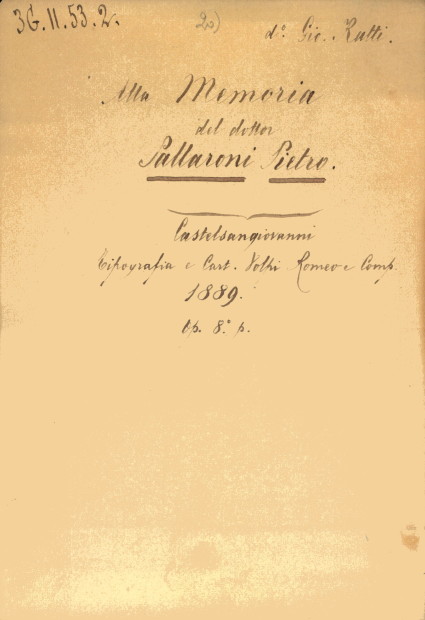 3G.11.53.2.
20)
d.º Gio. Ratti.
Alla Memoria
del dottor
Pallaroni Pietro.
Castelsangiovanni
Tipografia e Cart. Volpi Romeo e Comp.
1889.
Op. 8.º p.